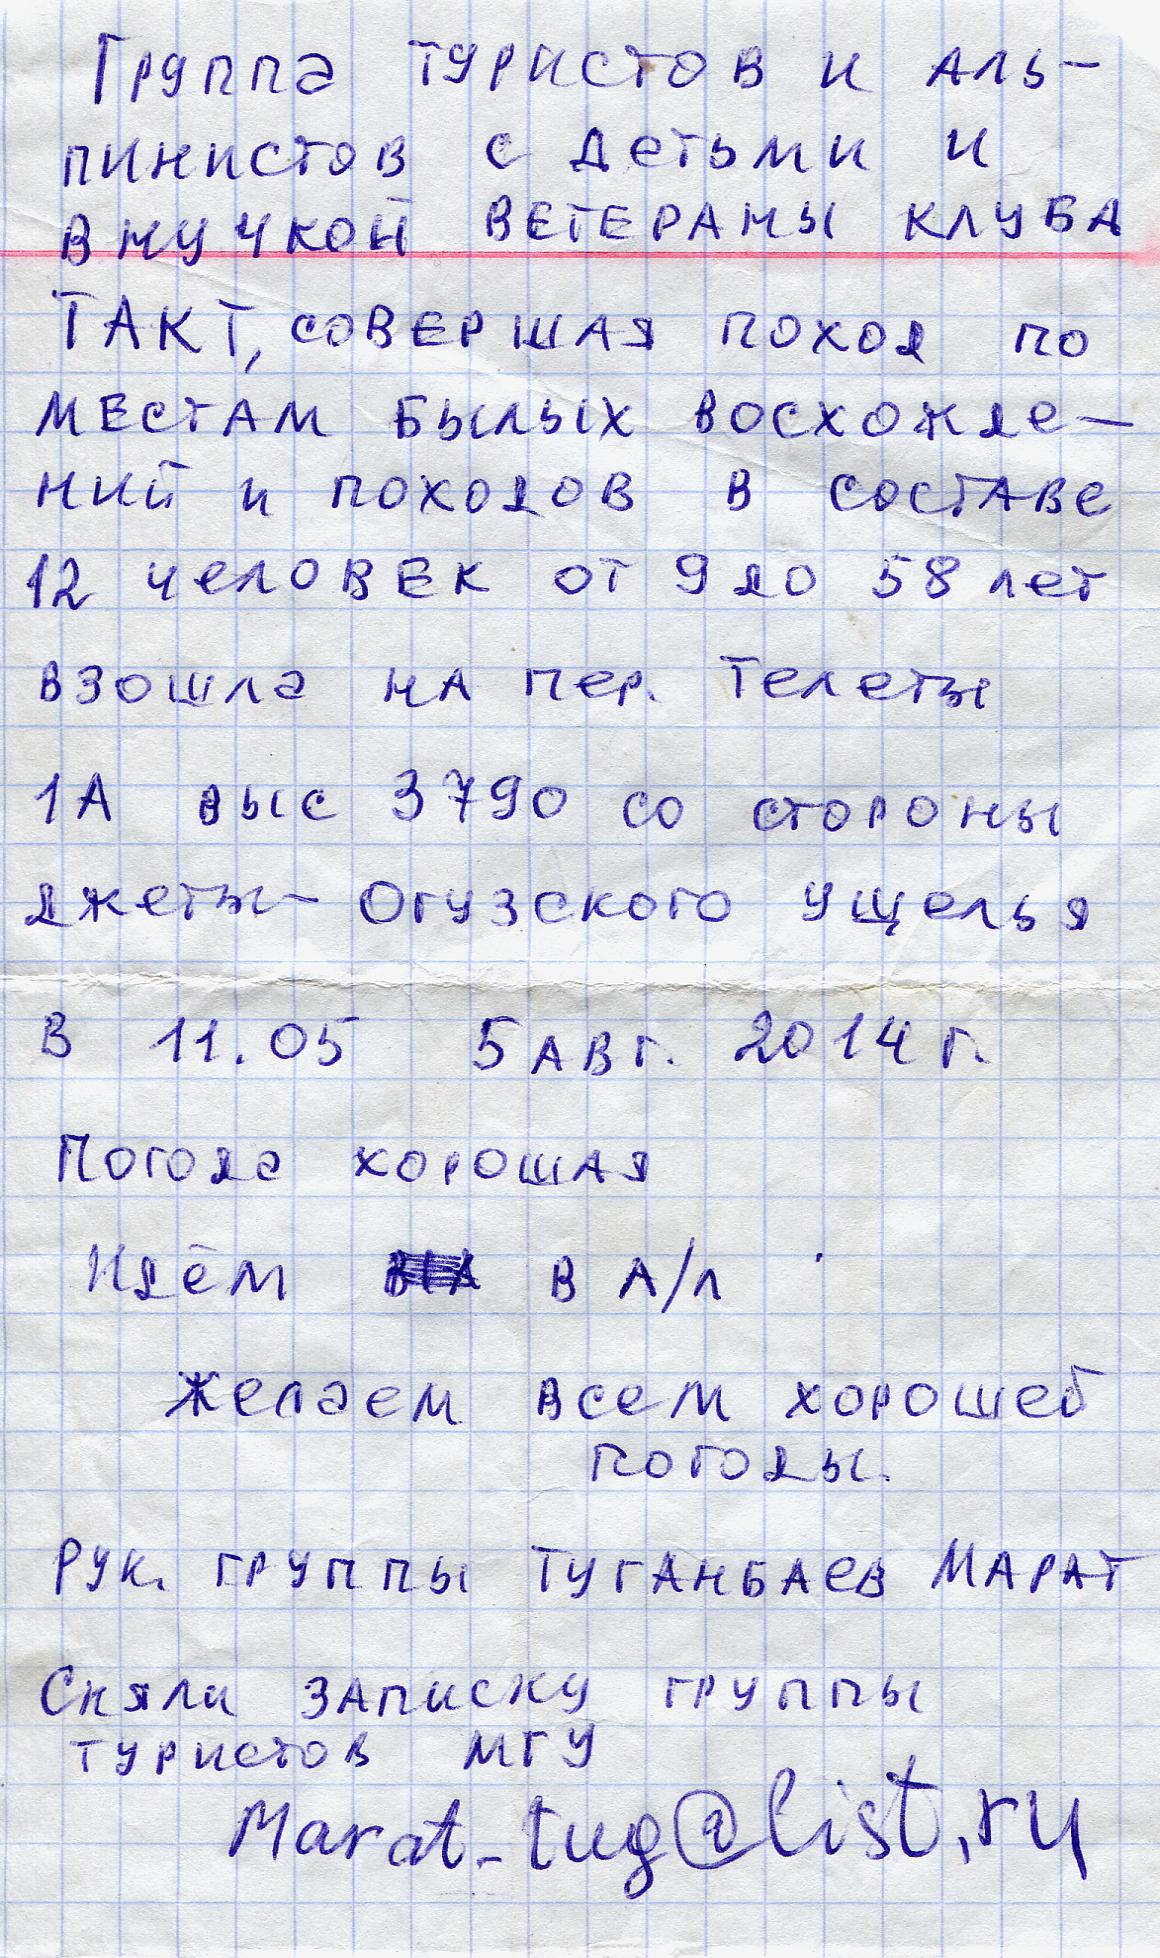 Группа туристов и аль-
пинистов с детьми и
внучкой ВЕТЕРАНЫ КЛУБА
ТАКТ, СОВЕРШАЯ ПОХОД по
МЕСТАМ БЫЛЫХ ВОСХОЖДЕ-
НИЙ и ПОХОДОВ В СОСТАВЕ
12 человек от 9 до 58 лет
взошла на пер. Телеты
1А выс 3790 со стороны
джеты-Огузского ущелья
В 11.05 5 авг. 2014 г.
Погода хорошая
Идём в А/л
Желаем всем хорошей
погоды.
Рук. группы Туганбаев Марат
Сняли записку группы
туристов МГУ
Marat_tug@list.ru